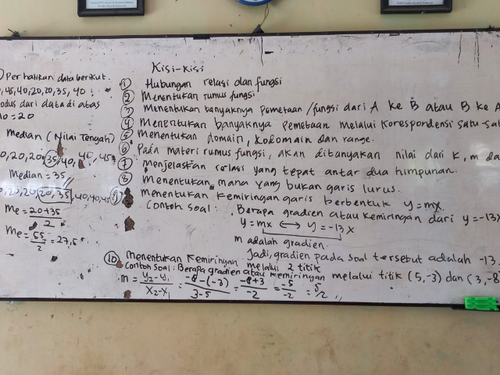 Perhatikan data berikut.
45, 40, 20, 20, 35, 40
modus dari data di atas
Mo = 20
Median (Nilai Tengah)
20, 20, 35, 40, 40, 45
Median = 35
20, 35, 40, 40
Me = 20+35
2
Me = 55 = 27,5
2
Kisi-Kisi
① Hubungan relasi dan fungsi
② Menentukan rumus fungsi
③ Menentukan banyaknya Pemetaan / fungsi dari A ke B atau B ke A
④ Menentukan banyaknya pemetaan melalui korespondensi satu-sat
⑤ Menentukan domain, kodomain dan range.
⑥ Pada materi rumus fungsi, akan ditanyakan nilai dari k, m da
⑦ Menjelaskan relasi yang tepat antar dua himpunan.
⑧ Menentukan mana yang bukan garis lurus.
⑨ Menentukan kemiringan garis berbentuk y = mx
Contoh soal : Berapa gradien atau kemiringan dari y = -13
y = mx ⟷ y = -13 x
m adalah gradien.
Jadi, gradien pada soal tersebut adalah -13.
⑩ Menentukan Kemiringan melalui 2 titik
Contoh soal : Berapa gradien atau kemiringan melalui titik (5, -3) dan (3, -8
m = y₂ - y₁ = -8 - (-3) = -8 + 3 = -5 = 5/2
x₂ - x₁ 3 - 5 -2 -2